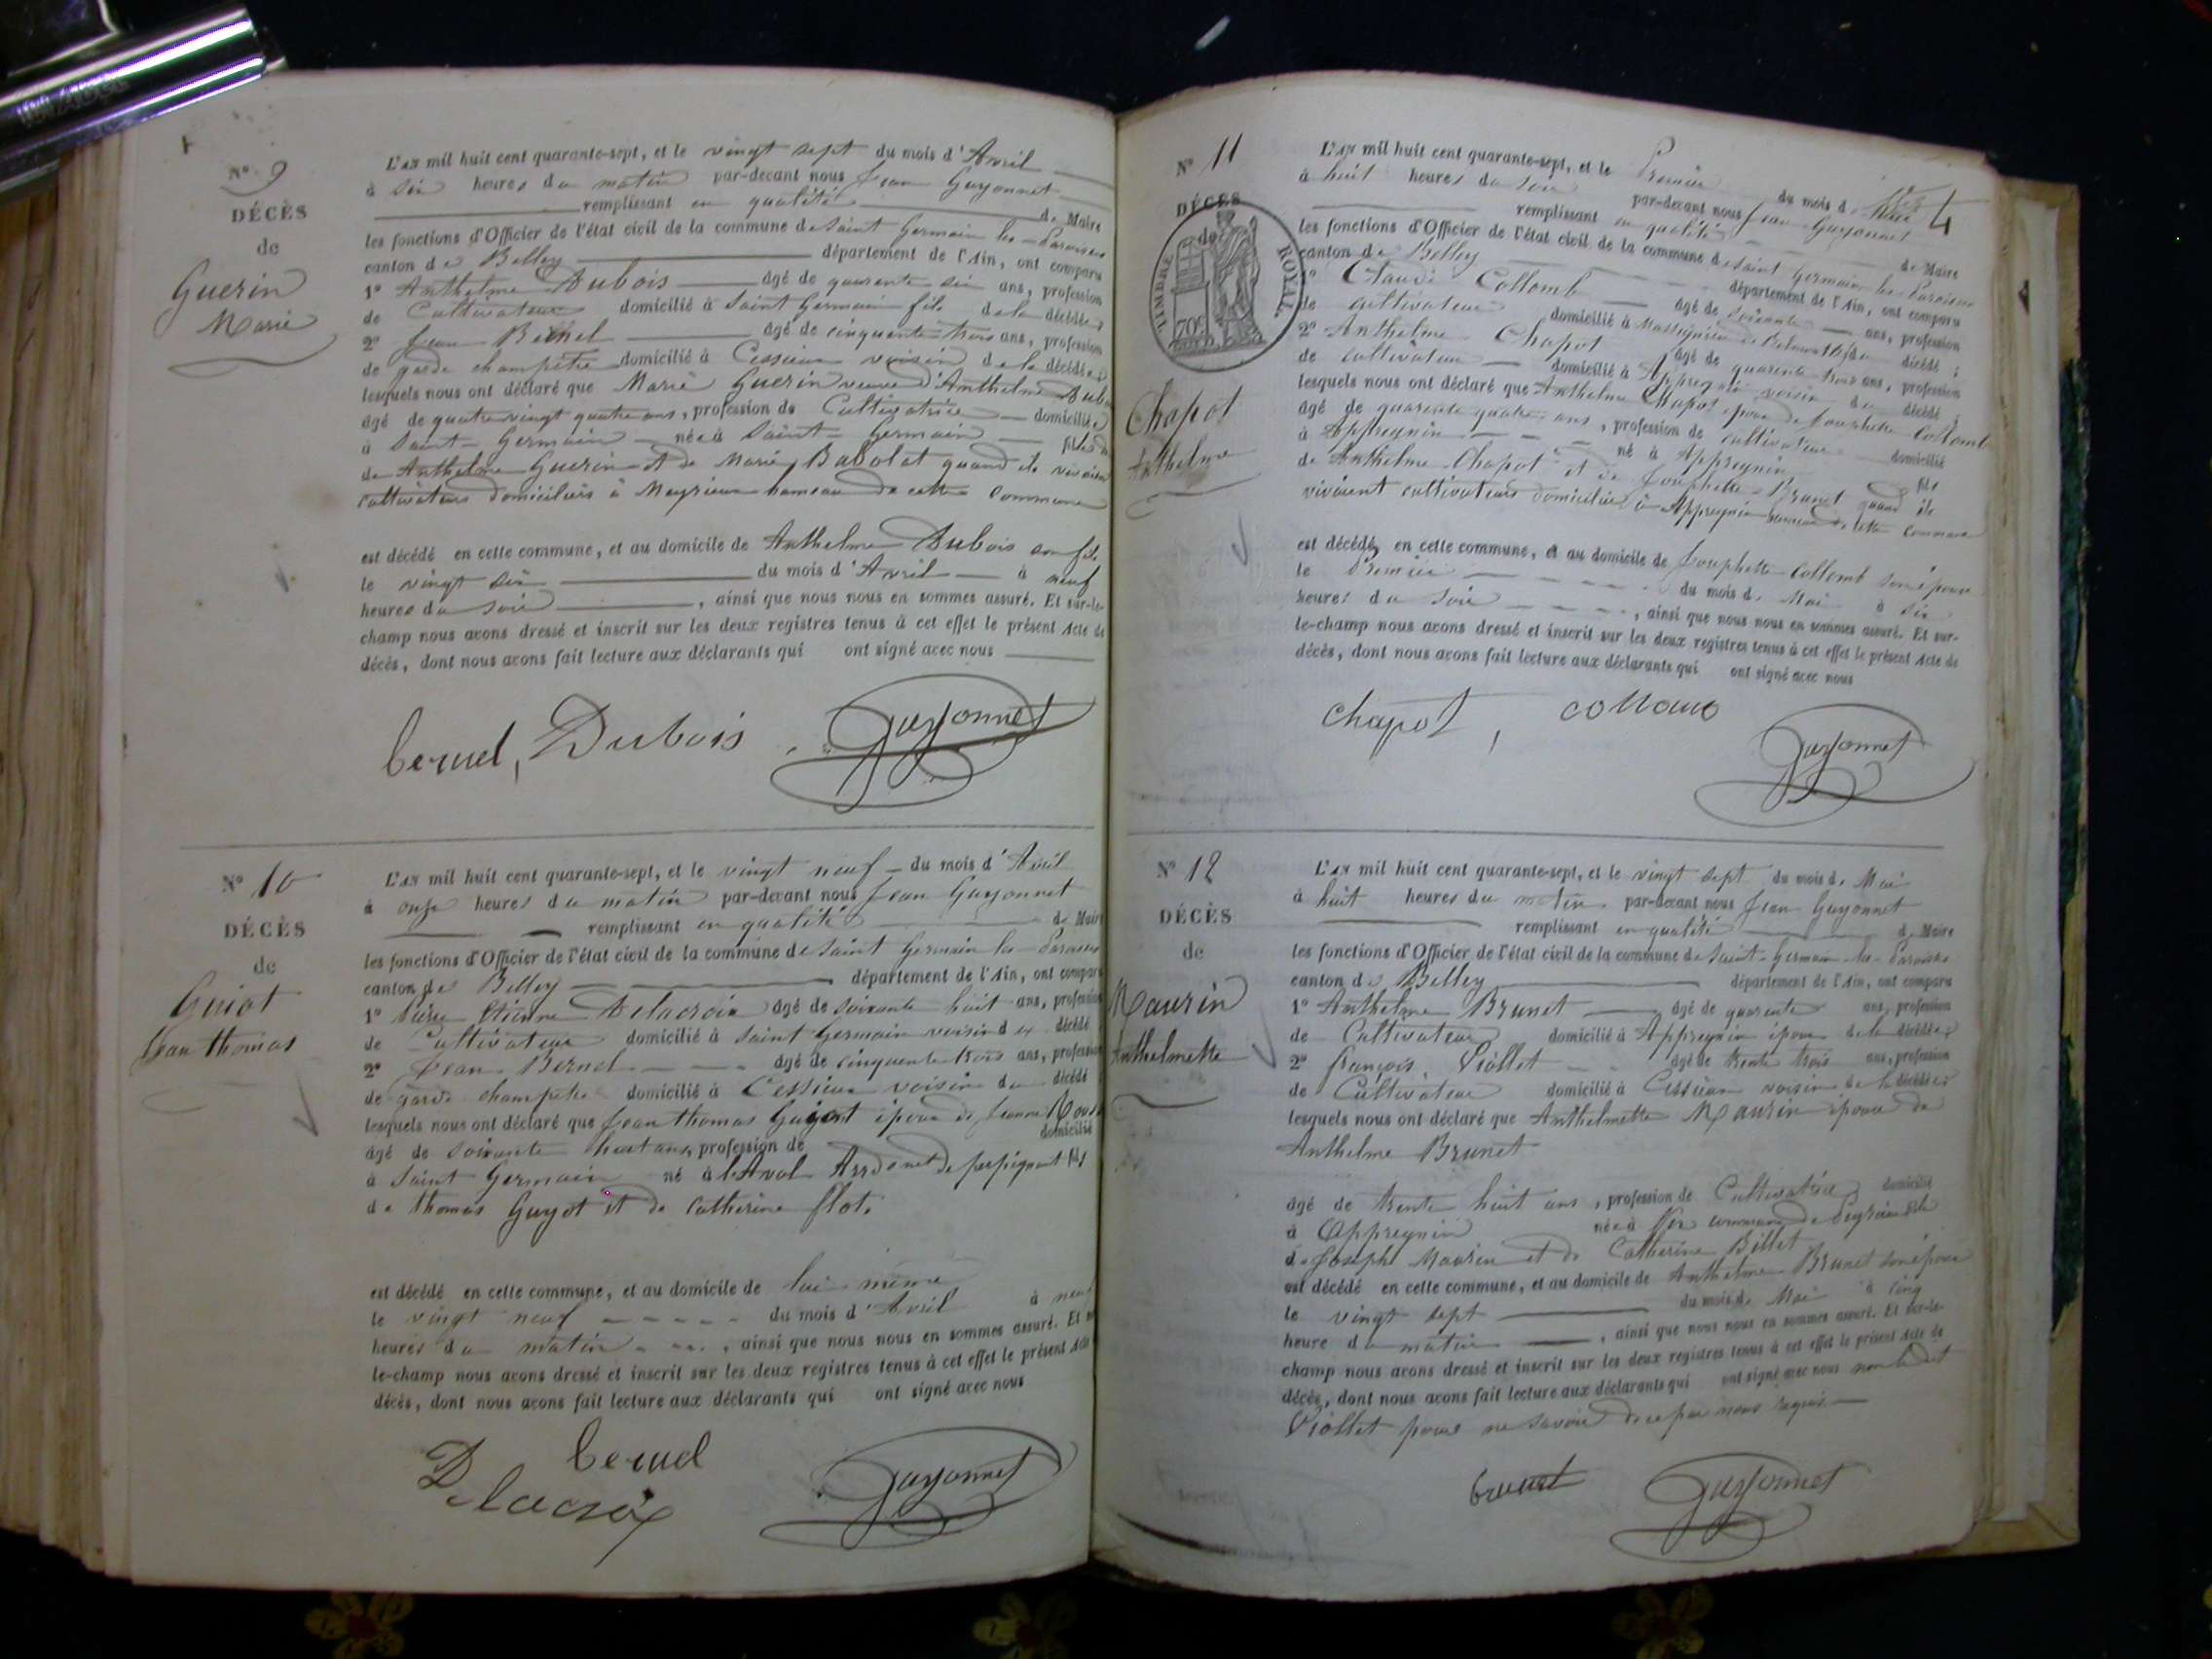 N° 9
DÉCÈS
de
Guerin
Marie
L'an mil huit cent quarante-sept, et le vingt sept du mois d'Avril
à six heures du matin par-devant nous Jean Guyonnet
remplissant en qualité de Maire
les fonctions d'Officier de l'état civil de la commune de Saint Germain les Paroisses
canton de Belley département de l'Ain, ont comparu
1° Anthelme Dubois âgé de quarente six ans, profession
de Cultivateur domicilié à Saint Germain fils de la décédée,
2° Jean âgé de cinquente trois ans, profession
de garde champêtre domicilié à Cessieux voisin de la décédée;
lesquels nous ont déclaré que Marie Guerin veuve d'Anthelme Dubois
âgé de quatre vingt quatre ans, profession de Cultivatrice domiciliée
à Saint-Germain née à Saint-Germain fille
de Anthelme Guerin et de Marie Babolat quand ils vivaient
cultivateurs domiciliés à Meyrieux hameau de cette commune
est décédé en cette commune, et au domicile de Anthelme Dubois son fils
le vingt six du mois d'Avril à neuf
heures du soir, ainsi que nous nous en sommes assuré. Et sur-le-
champ nous avons dressé et inscrit sur les deux registres tenus à cet effet le présent Acte de
décès, dont nous avons fait lecture aux déclarants qui ont signé avec nous
beruel, Dubois Guyonnet
N° 10
DÉCÈS
de
Guiot
Jean thomas
L'an mil huit cent quarante-sept, et le vingt neuf du mois d'Avril
à onze heures du matin par-devant nous Jean Guyonnet
remplissant en qualité de Maire
les fonctions d'Officier de l'état civil de la commune de Saint Germain les Paroisses
canton de Belley département de l'Ain, ont comparu
1° Pierre Etienne Delacroix âgé de soixante huit ans, profession
de Cultivateur domicilié à Saint Germain voisin du décédé
2° Jean Bernel âgé de cinquente trois ans, profession
de garde champêtre domicilié à Cessieux voisin du décédé
lesquels nous ont déclaré que Jean thomas Guyot époux de Jeanne
âgé de soixante huit ans, profession de domicilié
à Saint Germain né à Arrd.ement de perpignant fils
de thomas Guyot et de Catherine flot.
est décédé en cette commune, et au domicile de lui même
le vingt neuf du mois d'Avril à neuf
heures du matin, ainsi que nous nous en sommes assuré. Et sur
le-champ nous avons dressé et inscrit sur les deux registres tenus à cet effet le présent Acte
décès, dont nous avons fait lecture aux déclarants qui ont signé avec nous
beruel
Delacroix Guyonnet
N° 11
4
DÉCÈS
de
TIMBRE ROYAL
70c
Chapot
Anthelme
L'an mil huit cent quarante-sept, et le Premier du mois de Mai
à huit heures du soir par-devant nous Jean Guyonnet
remplissant en qualité de Maire
les fonctions d'Officier de l'état civil de la commune de Saint Germain les Paroisses
canton de Belley département de l'Ain, ont comparu
1° Claude Collomb âgé de soixante ans, profession
de cultivateur domicilié à du décédé;
2° Anthelme Chapot âgé de quarente trois ans, profession
de cultivateur domicilié à Appregnin voisin du décédé;
lesquels nous ont déclaré que Anthelme Chapot époux de Josephette Collomb
âgé de quarente quatre ans, profession de cultivateur domicilié
à Appregnin né à Appregnin fils
de Anthelme Chapot et de Josephette Brunet quand ils
vivaient cultivateurs domiciliés à Appregnin hameau de cette commune
est décédé en cette commune, et au domicile de Josephette Collomb son épouse
le Premier du mois de Mai à six
heures du soir, ainsi que nous nous en sommes assuré. Et sur-
le-champ nous avons dressé et inscrit sur les deux registres tenus à cet effet le présent Acte de
décès, dont nous avons fait lecture aux déclarants qui ont signé avec nous
chapot, Guyonnet
N° 12
DÉCÈS
de
Maurin
Anthelmette
L'an mil huit cent quarante-sept, et le vingt sept du mois de Mai
à huit heures du matin par-devant nous Jean Guyonnet
remplissant en qualité de Maire
les fonctions d'Officier de l'état civil de la commune de Saint-Germain-les-Paroisses
canton de Belley département de l'Ain, ont comparu
1° Anthelme Brunet âgé de quarente ans, profession
de Cultivateur domicilié à Appregnin époux de la décédée;
2° françois Viollet âgé de trente trois ans, profession
de Cultivateur domicilié à Cessieux voisin de la décédée;
lesquels nous ont déclaré que Anthelmette Maurin épouse de
Anthelme Brunet
âgé de trente huit ans, profession de Cultivatrice domicilié
à Appregnin née à commune de fille
de Joseph Maurin et de Catherine Billet
est décédé en cette commune, et au domicile de Anthelme Brunet son époux
le vingt sept du mois de Mai à cinq
heure du matin, ainsi que nous nous en sommes assuré. Et sur-le-
champ nous avons dressé et inscrit sur les deux registres tenus à cet effet le présent Acte de
décès, dont nous avons fait lecture aux déclarants qui ont signé avec nous non ledit
Viollet pour ne savoir de ce par nous requis
brunet Guyonnet